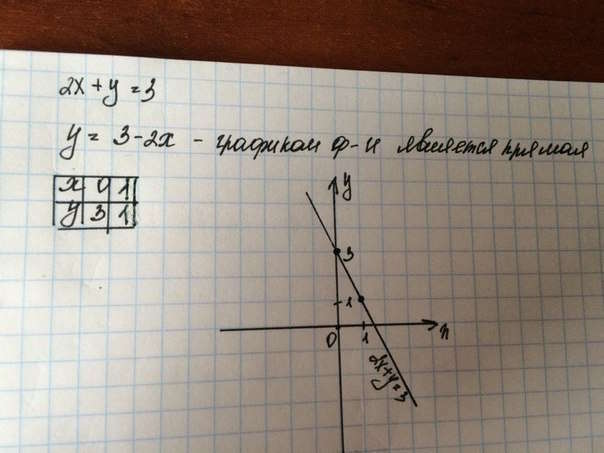 2x + y = 3
y = 3 - 2x - графиком ф-и является прямая
x 0 1
y 3 1
y
3
1
0 1 x
2x+y=3